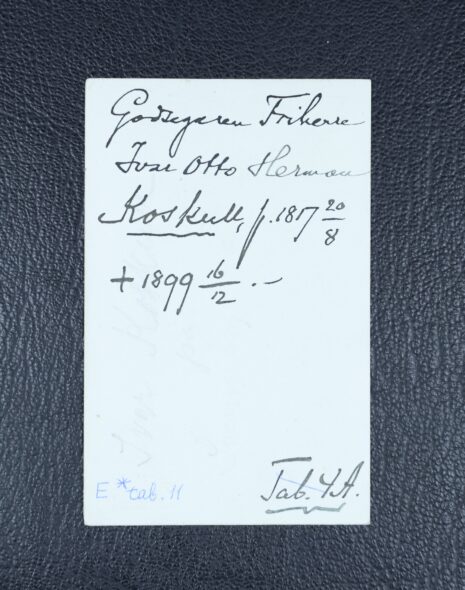 Godsegaren Friherre
Ivar Otto Herman
Koskull, f. 1817 20/8
+ 1899 16/12 . –
E *tab. 11
Tab. 4A.